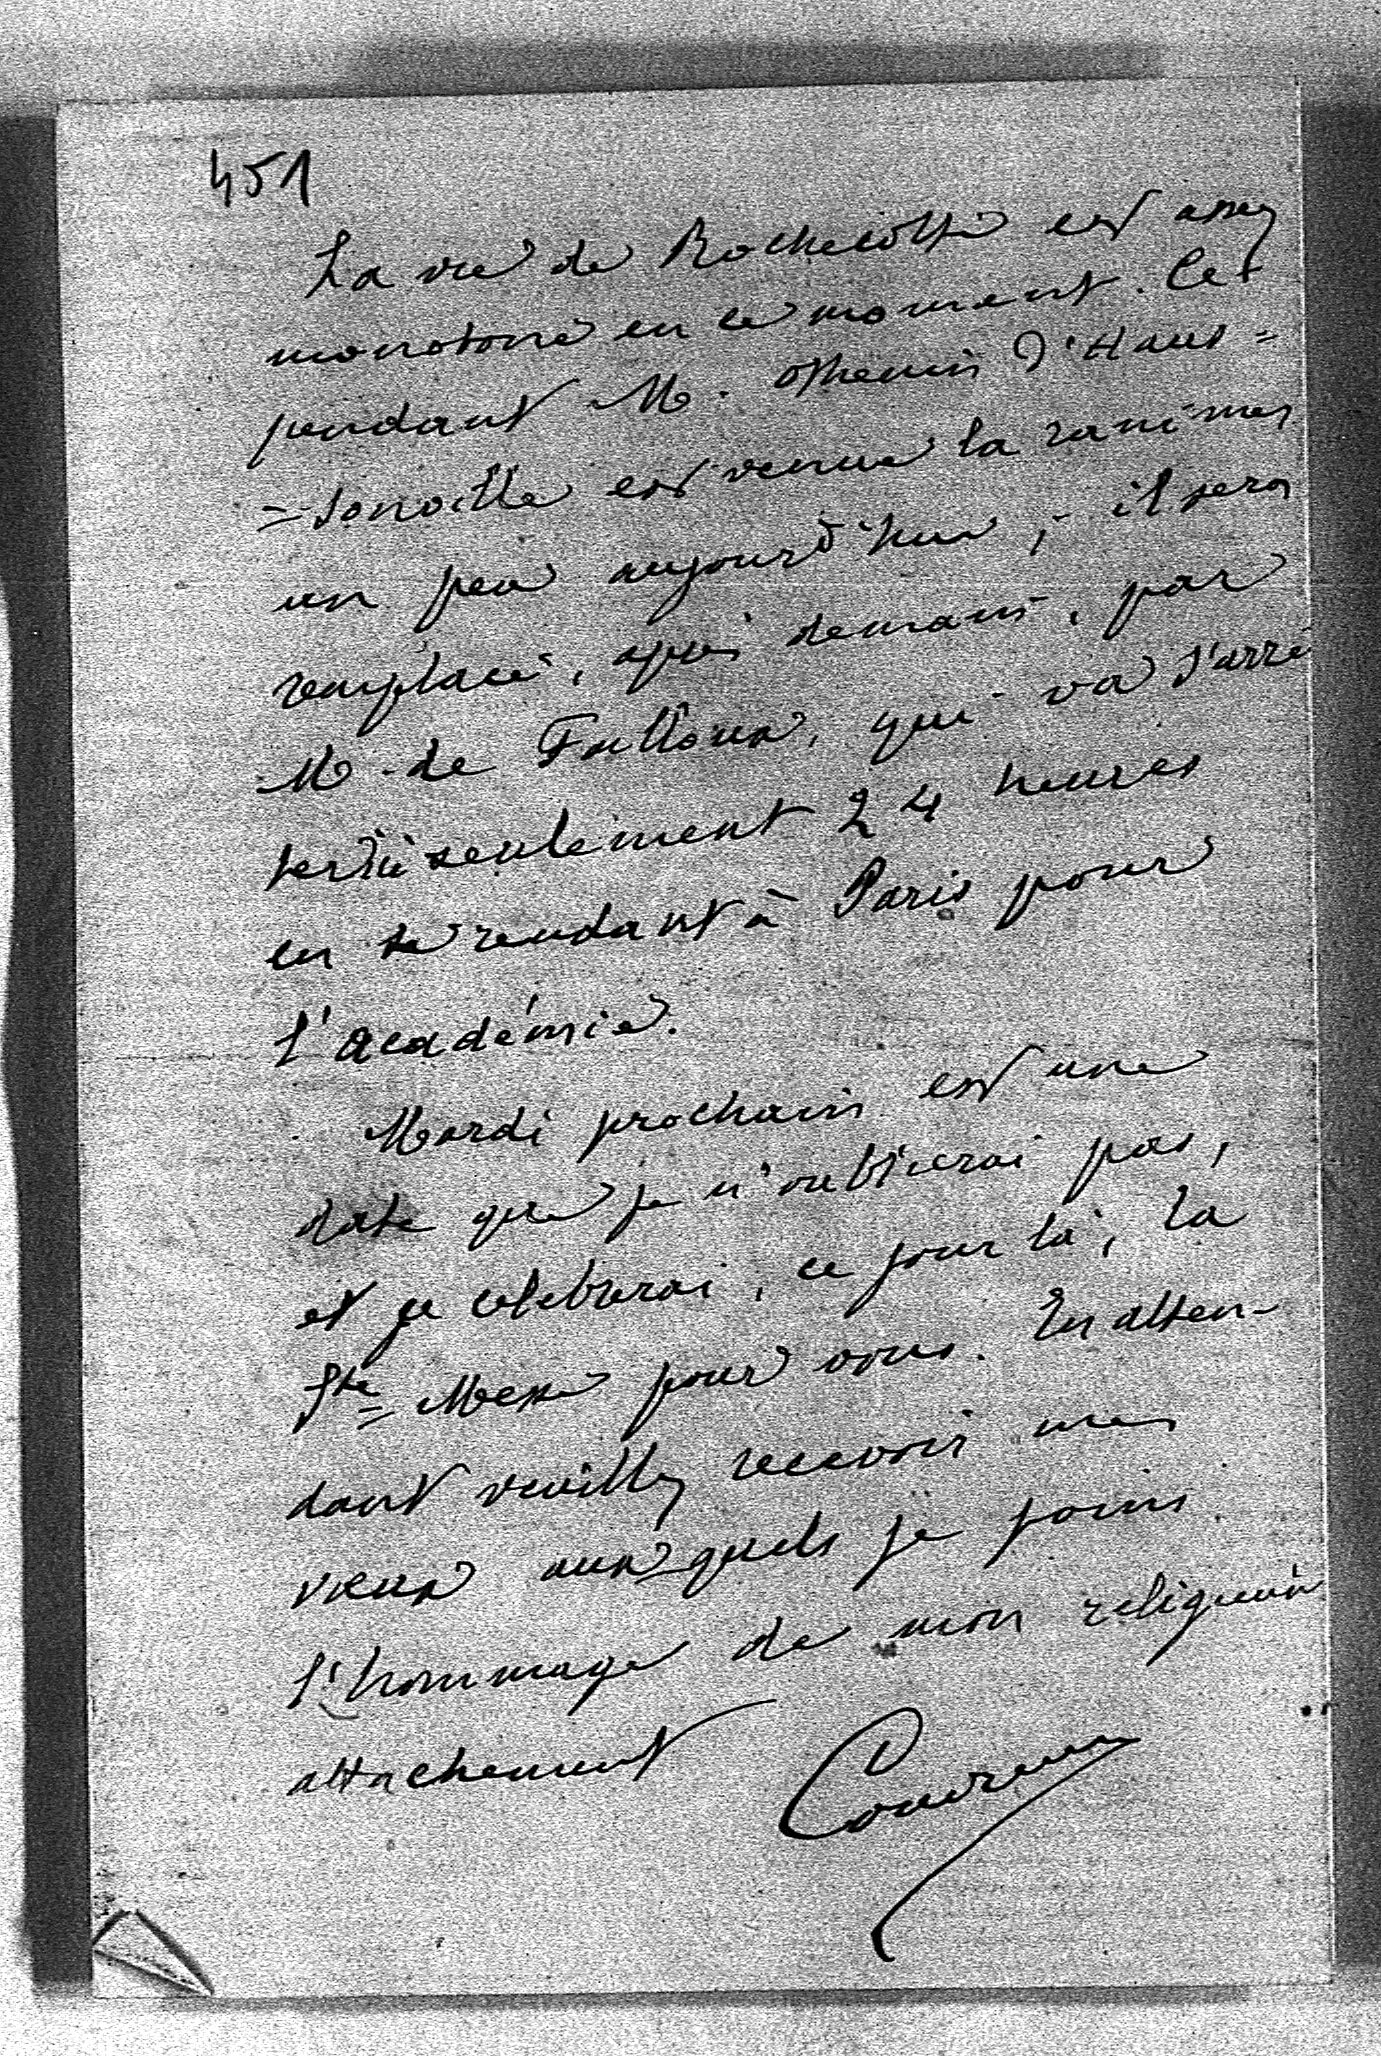 451
La vie de Rochecotte est assez
monotone en ce moment. Ce-
pendant M. Othenin d'Haus=
=sonville est venue la ranimer
un peu aujourd'hui ; il sera
remplacé, après demain, par
M. de Falloux, qui va s'arrê
ter ici seulement 24 heures
en se rendant à Paris pour
l'académie.
Mardi prochain est une
date que je n'oublierai pas,
et je celebrerai, ce jour là, la
Ste Messe pour vous. En atten-
dant veuillez recevoir mes
vœux auxquels je joins
l'hommage de mon religieux
attachement